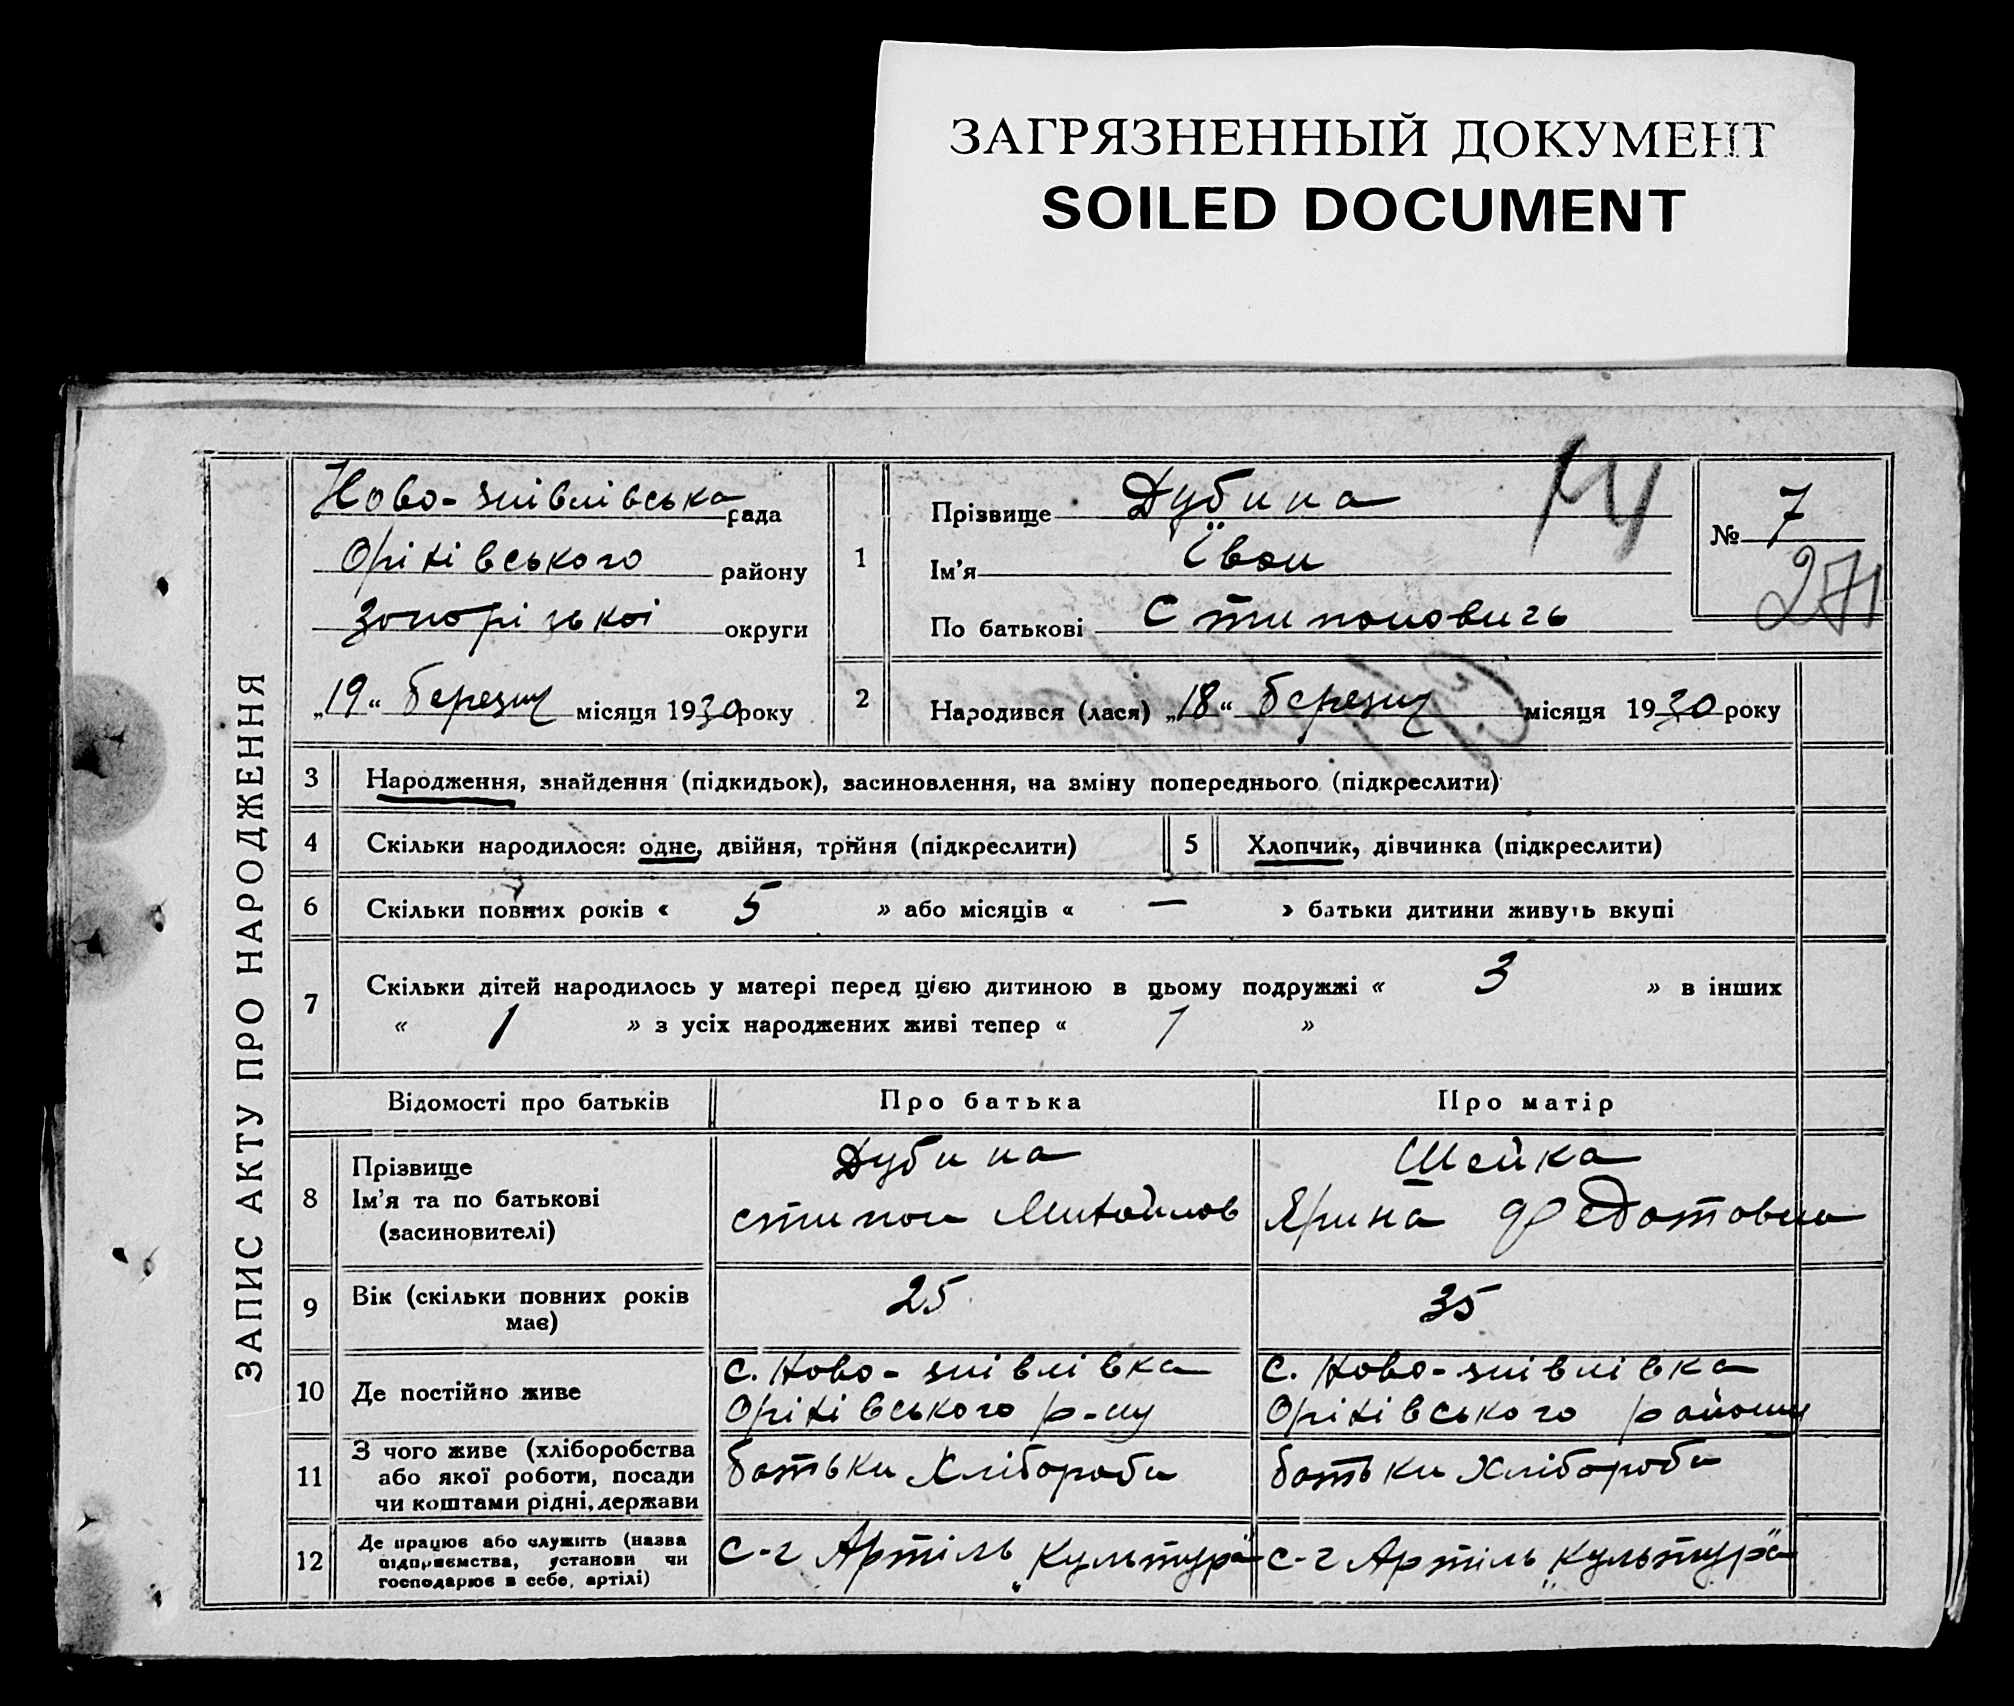 ЗАГРЯЗНЕННЫЙ ДОКУМЕНТ
SOILED DOCUMENT
ЗАПИС АКТУ ПРО НАРОДЖЕННЯ
Ново-знівлівська рада
Оріхівського району
Запорізької округи
„19“ березня місяця 1930 року
1
Прізвище Дубина
Ім'я Іван
По батькові Стипанович
№ 7
271
2
Народився (лася) „18“ березня місяця 1930 року
3 Народження, знайдення (підкидьок), засиновлення, на зміну попереднього (підкреслити)
4 Скільки народилося: одне, двійня, трійня (підкреслити) 5 Хлопчик, дівчинка (підкреслити)
6 Скільки повних років « 5 » або місяців « — » батьки дитини живуть вкупі
7 Скільки дітей народилось у матері перед цією дитиною в цьому подружжі « 3 » в інших
« 1 » з усіх народжених живі тепер « 1 »
Відомості про батьків Про батька Про матір
8 Прізвище
Ім'я та по батькові
(засиновителі)
Дубина
Стипан Михайлов
Шейка
Ярина Федотовна
9 Вік (скільки повних років
має)
25
35
10 Де постійно живе
с. Ново-знівлівка
Оріхівського р-ну
с. Ново-знівлівка
Оріхівського району
11 З чого живе (хліборобства
або якої роботи, посади
чи коштами рідні, держави
батьки Хлібороби
батьки Хлібороби
12 Де працює або служить (назва
підприємства, установи чи
господарює в себе, артілі)
с-г Артіль „Культура“
с-г Артіль „Культура“